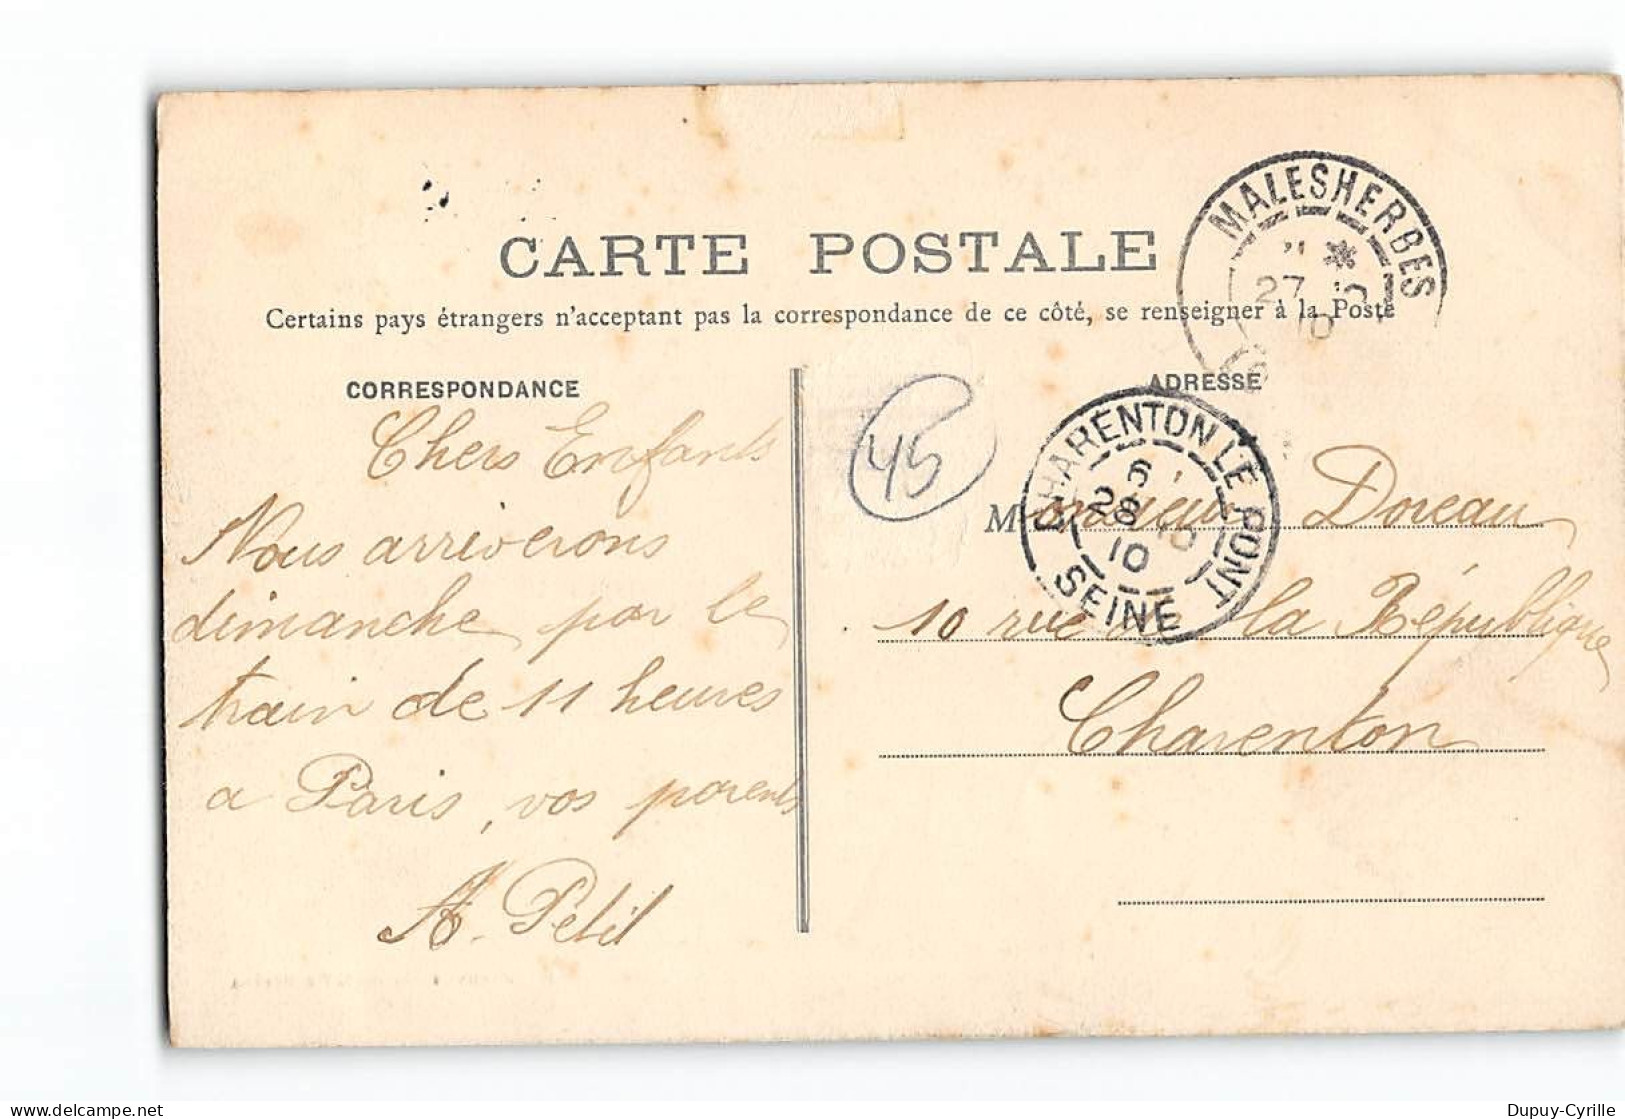 CARTE POSTALE
Certains pays étrangers n'acceptant pas la correspondance de ce côté, se renseigner à la Poste
CORRESPONDANCE
Chers Enfants
Nous arriverons
dimanche par le
train de 11 heures
a Paris, vos parents
A. Petit
45
MALESHERBES
27
10
ADRESSE
CHARENTON LE PONT
6
28 10
10
SEINE
Monsieur Doreau
10 rue de la République
Charenton
Dupuy-Cyrille